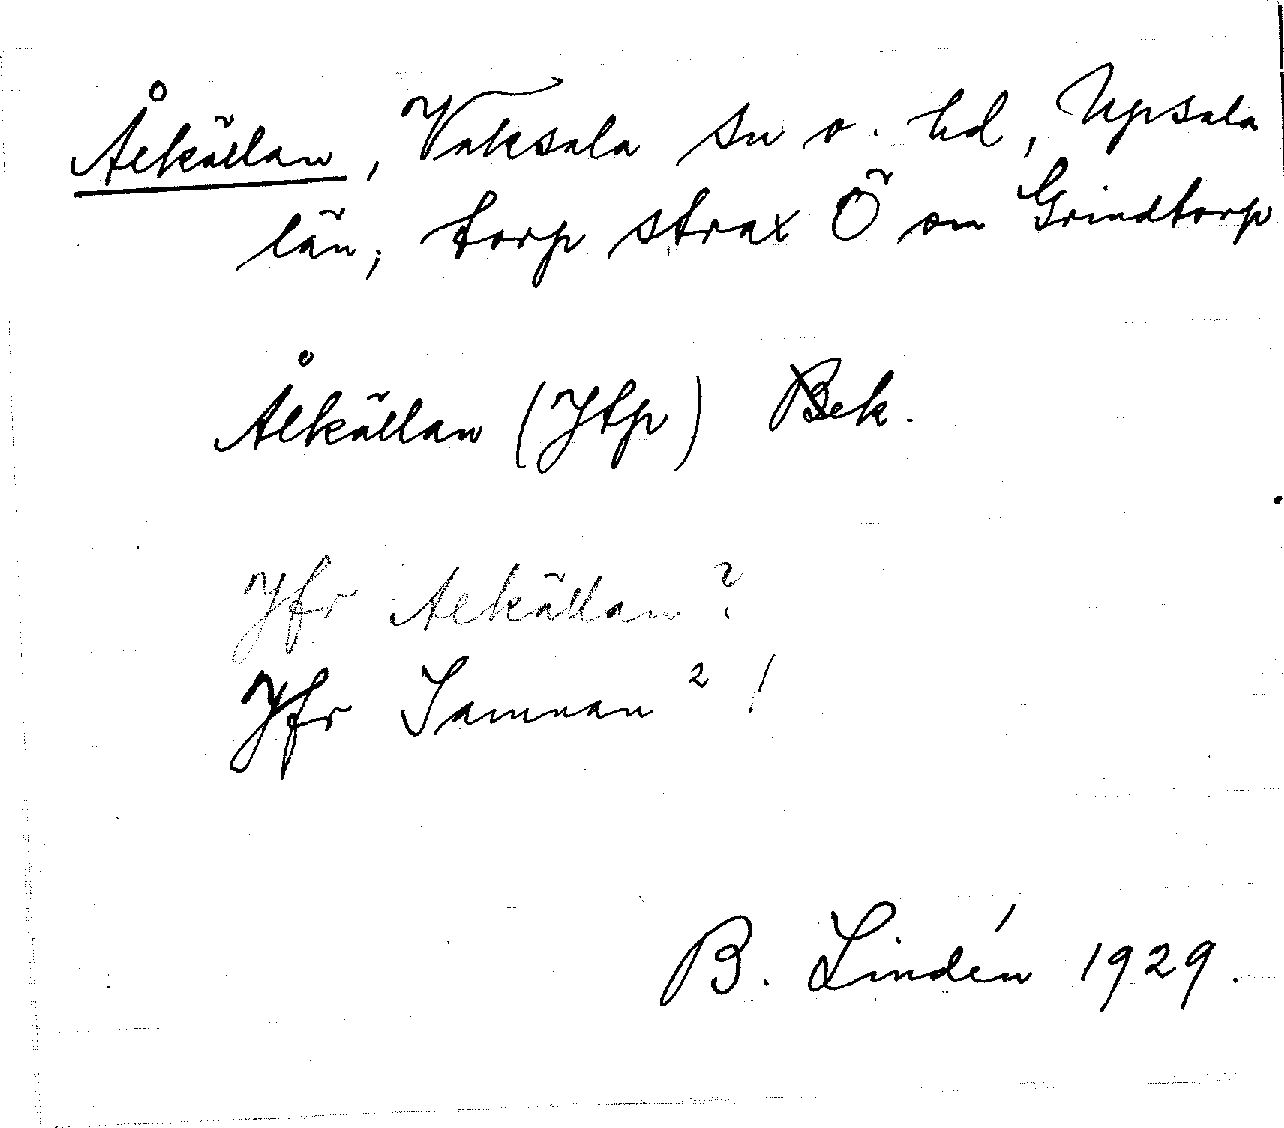 Ålkällan, Vaksala sn o. hd, Upsala
län; torp strax Ö om Grindtorp
Ålkällan (Jtp) Bek.
Jfr Alkällan?
Jfr Samnan 2/
B. Lindén 1929.